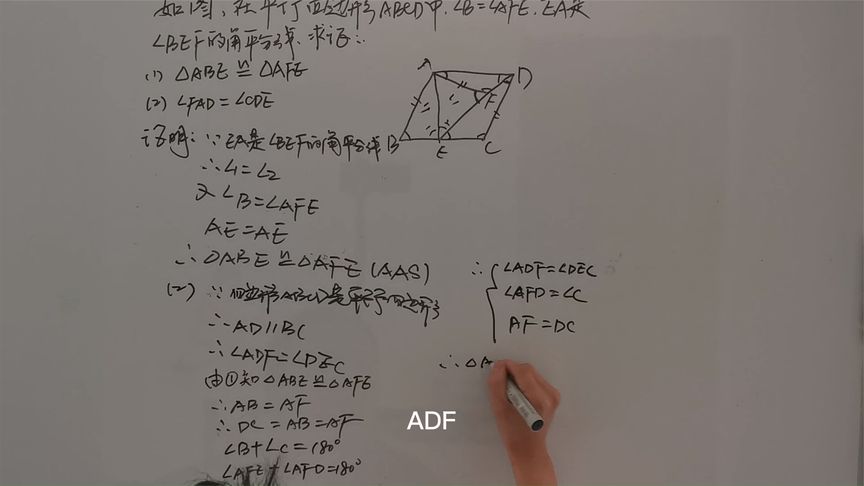 如图,在平行四边形ABCD中,∠B=∠AFE,EA是
∠BEF的角平分线.求证:
(1) △ABE≌△AFE
(2) ∠FAD=∠CDE
证明:∵EA是∠BEF的角平分线
∴∠1=∠2
又∠B=∠AFE
AE=AE
∴△ABE≌△AFE(AAS)
(2) ∵四边形ABCD是平行四边形
∴AD∥BC
∴∠ADF=∠DEC
由①知△ABE≌△AFE
∴AB=AF
∴DC=AB=AF
∠B+∠C=180°
∠AFE+∠AFD=180°
A
D
F
B
E
C
∴{∠ADF=∠DEC
∠AFD=∠C
AF=DC
∴△A
ADF